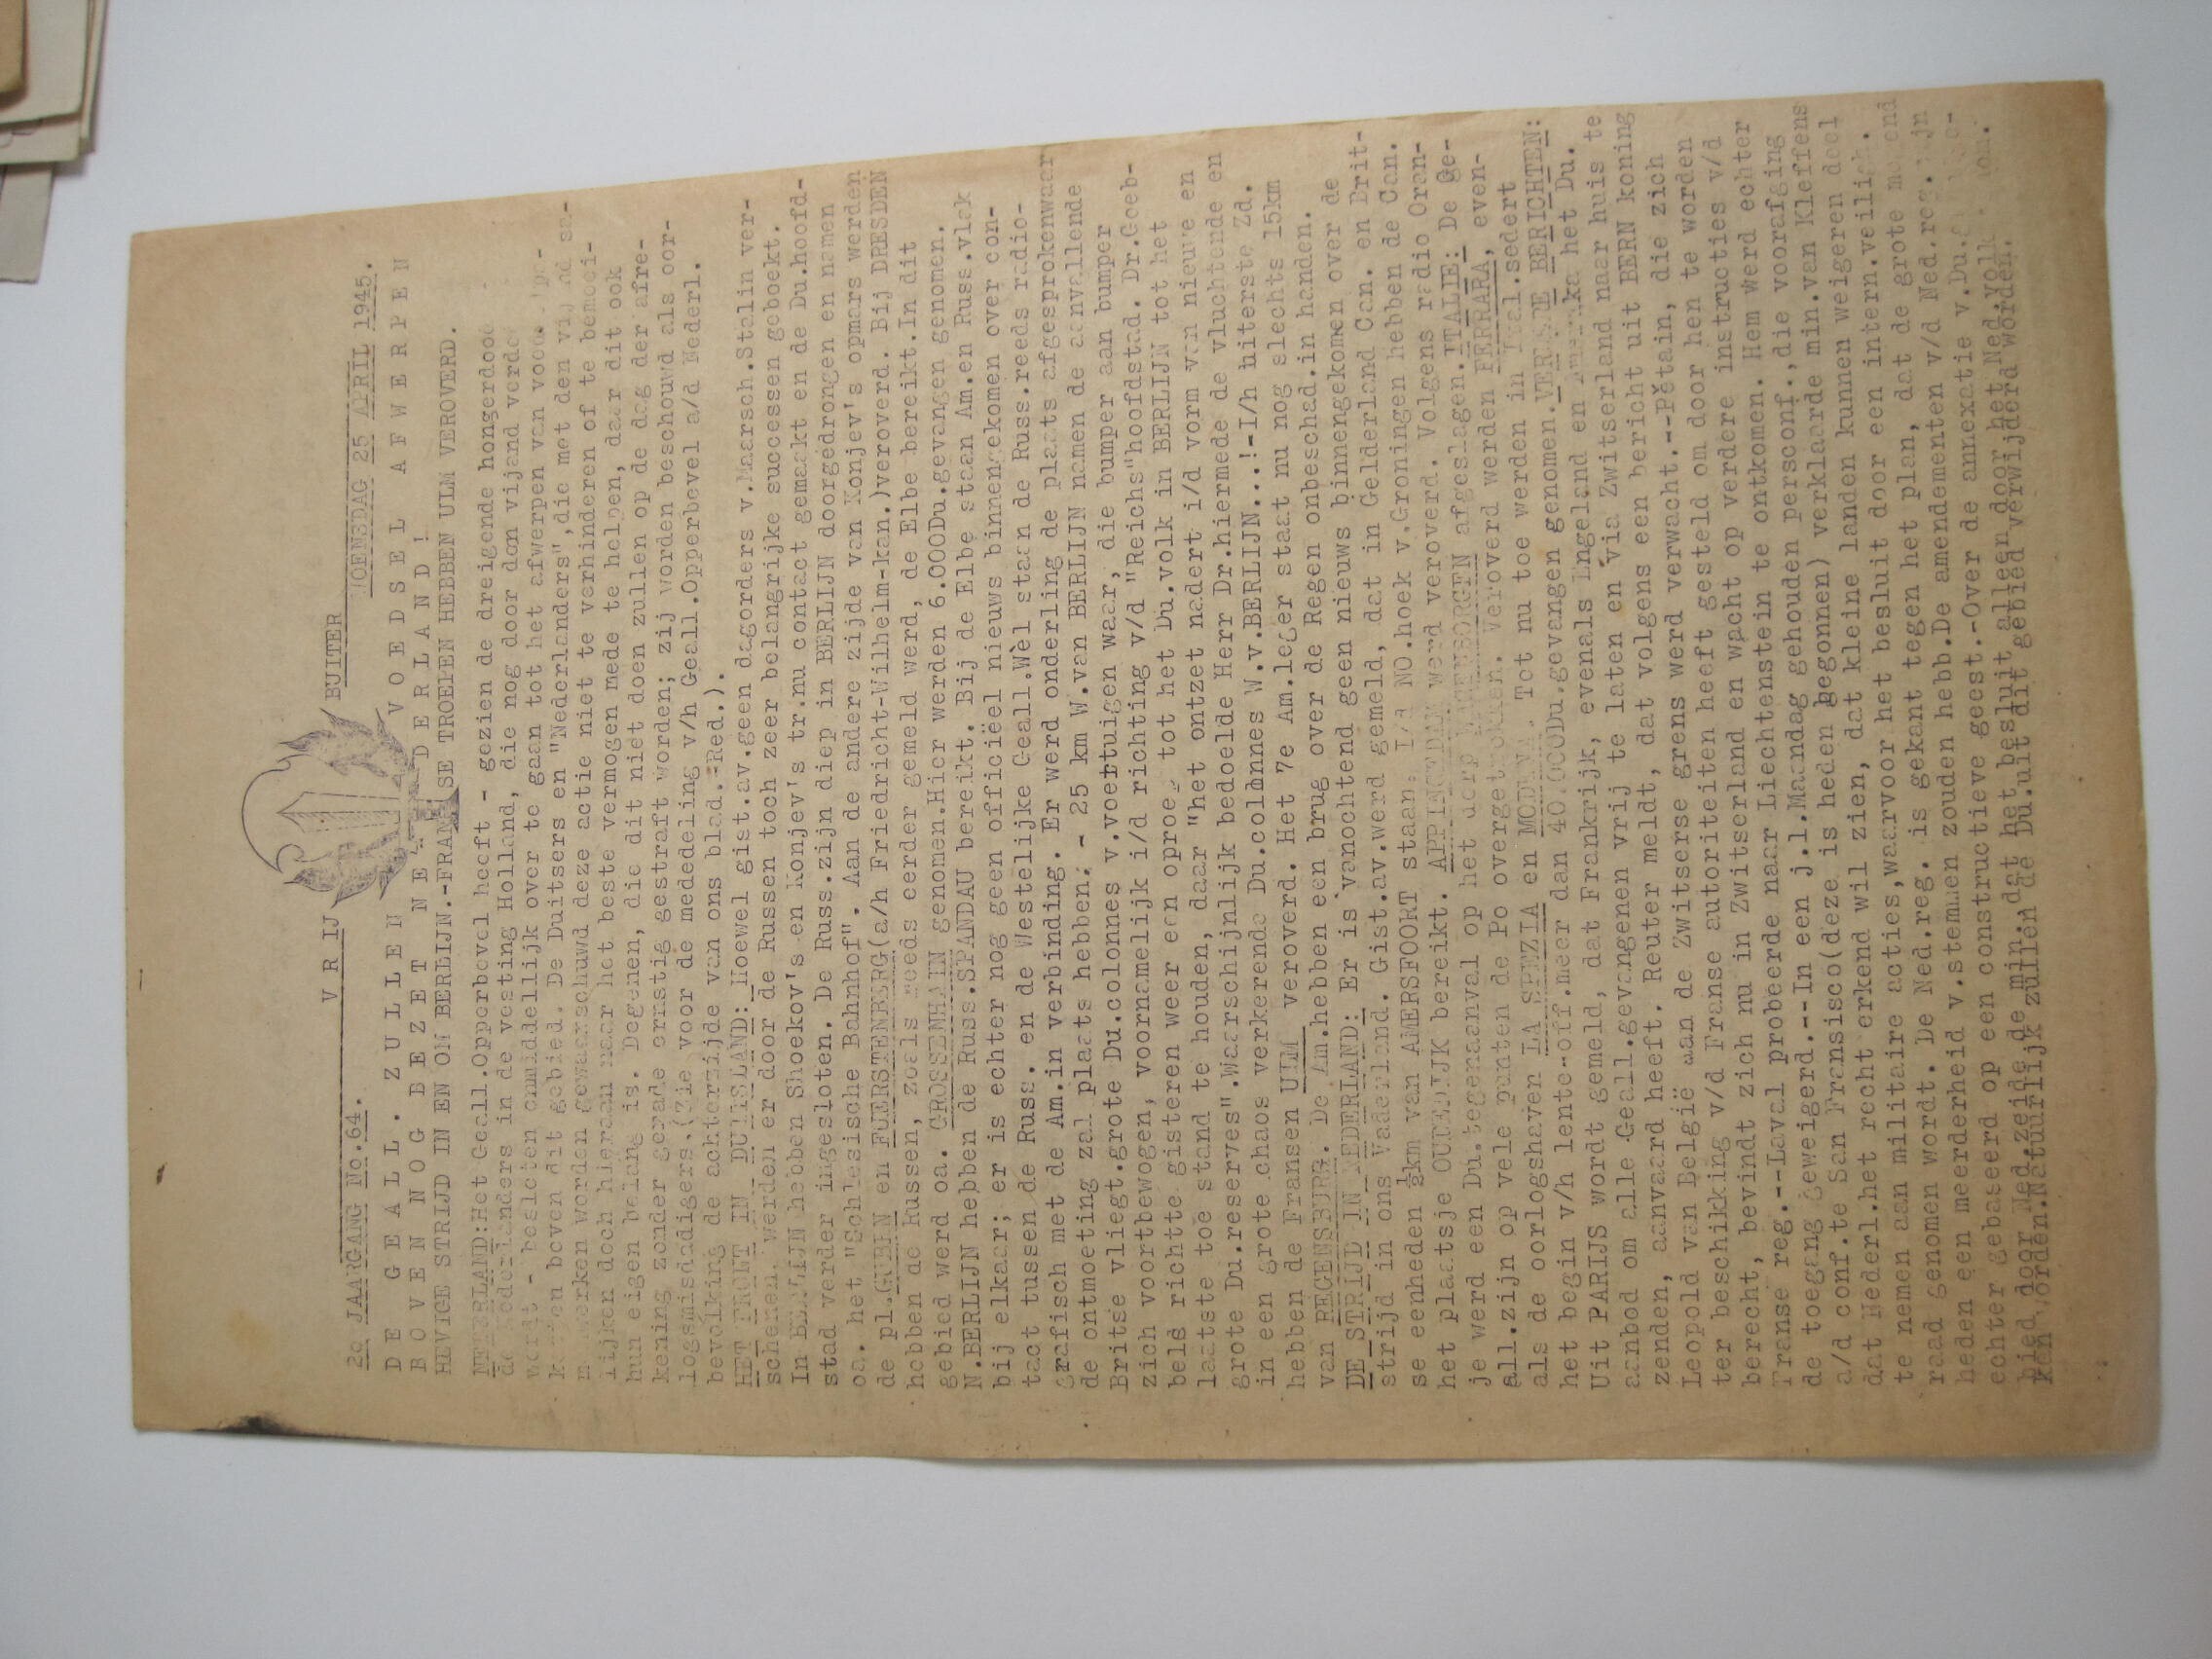 V R IJ BUITER
2e JAARGANG No.64. WOENSDAG 25 APRIL 1945.
D E G E A L L . Z U L L E N V O E D S E L A F W E R P E N
B O V E N N O G B E Z E T N E D E R L A N D !
HEVIGE STRIJD IN EN OM BERLIJN.-FRANSE TROEPEN HEBBEN ULM VEROVERD.
NEDERLAND:Het Geall.Opperbevel heeft - gezien de dreigende hongerdood
der Nederlanders in de vesting Holland, die nog door den vijand verde
wordt - besloten onmiddellijk over te gaan tot het afwerpen van
boven dit gebied. De Duitsers en "Nederlanders",die met den vijand sa-
menwerken worden gewaarschuwd deze actie niet te verhinderen of te bemoei-
lijken doch hieraan naar het beste vermogen mede te helpen, daar dit ook
hun eigen belang is. Degenen, die dit niet doen zullen op de dag der afre-
kening zonder genade ernstig gestraft worden; zij worden beschouwd als oor-
logsmisdadigers.(Zie voor de mededeling v/h Geall.Opperbevel a/d Nederl.
bevolking de achterzijde van ons blad.-Red.).
HET FRONT IN DUITSLAND: Hoewel gist.av.geen dagorders v.Maarsch.Stalin ver-
schenen, werden er door de Russen toch zeer belangrijke successen geboekt.
In BERLIJN hebben Shoekov's en Konjev's tr.nu contact gemaakt en de Du.hoofd-
stad verder ingesloten. De Russ.zijn diep in BERLIJN doorgedrongen en namen
oa. het "Schlesische Bahnhof". Aan de andere zijde van Konjev's opmars werden
de pl.GUBEN en FUERSTENBERG(a/h Friedricht-Wilhelm-kan.)veroverd. Bij DRESDEN
hebben de Russen, zoals reeds eerder gemeld werd, de Elbe bereikt.In dit
gebied werd oa. GROSSENHAIN genomen.Hier werden 6.000Du.gevangen genomen.
N.BERLIJN hebben de Russ.SPANDAU bereikt. Bij de Elbe staan Am.en Russ.vlak
bij elkaar; er is echter nog geen officiëel nieuws binnengekomen over con-
tact tussen de Russ. en de Westelijke Geall.Wèl staan de Russ.reeds radio-
grafisch met de Am.in verbinding. Er werd onderling de plaats afgesprokenwaar
de ontmoeting zal plaats hebben.- 25 km W.van BERLIJN namen de aanvallende
Britse vliegt.grote Du.colonnes v.voertuigen waar, die bumper aan bumper
zich voortbewogen, voornamelijk i/d richting v/d "Reichs"hoofdstad. Dr.Goeb-
bels richtte gisteren weer een oproep tot het Du.volk in BERLIJN tot het
laatste toe stand te houden, daar "het ontzet nadert i/d vorm van nieuwe en
grote Du.reserves".Waarschijnlijk bedoelde Herr Dr.hiermede de vluchtende en
in een grote chaos verkerende Du.colonnes W.v.BERLIJN...!-I/h uiterste Zd.
hebben de Fransen ULM veroverd. Het 7e Am.leger staat nu nog slechts 15km
van REGENSBURG. De Am.hebben een brug over de Regen onbeschad.in handen.
DE STRIJD IN NEDERLAND: Er is vanochtend geen nieuws binnengekomen over de
strijd in ons Vaderland. Gist.av.werd gemeld, dat in Gelderland Can. en Brit-
se eenheden ½km van AMERSFOORT staan. I/d NO.hoek v.Groningen hebben de Can.
het plaatsje OUTEDIJK bereikt. APPINGEDAM werd veroverd. Volgens radio Oran-
je werd een Du.tegenaanval op het dorp WAGENBORGEN afgeslagen.ITALIE: De Ge-
all.zijn op vele punten de Po overgetrokken. Veroverd werden FERRARA, even-
als de oorlogshaven LA SPEZIA en MODENA. Tot nu toe werden in Ital.sedert
het begin v/h lente-off.meer dan 40.000Du.gevangen genomen.VERDERE BERICHTEN:
Uit PARIJS wordt gemeld, dat Frankrijk, evenals Engeland en Amerika het Du.
aanbod om alle Geall.gevangenen vrij te laten en via Zwitserland naar huis te
zenden, aanvaard heeft. Reuter meldt, dat volgens een bericht uit BERN koning
Leopold van België aan de Zwitserse grens werd verwacht.--Pétain, die zich
ter beschikking v/d Franse autoriteiten heeft gesteld om door hen te worden
berecht, bevindt zich nu in Zwitserland en wacht op verdere instructies v/d
Franse reg.--Laval probeerde naar Liechtenstein te ontkomen. Hem werd echter
de toegang geweigerd.--In een j.l.Maandag gehouden persconf.,die voorafging
a/d conf.te San Fransisco(deze is heden begonnen) verklaarde min.van Kleffens
dat Nederl.het recht erkend wil zien, dat kleine landen kunnen weigeren deel
te nemen aan militaire acties,waarvoor het besluit door een intern.veilich.
raad genomen wordt. De Ned.reg. is gekant tegen het plan, dat de grote
heden een meerderheid v.stemmen zouden hebb.De amendementen v/d Ned.reg.zijn
echter gebaseerd op een constructieve geest.-Over de annexatie v.Du.
bied door Ned.zeide de min.dat het besluit alleen door het Ned.volk
kan worden.Natuurlijk zullen de Du.uit dit gebied verwijderd worden.